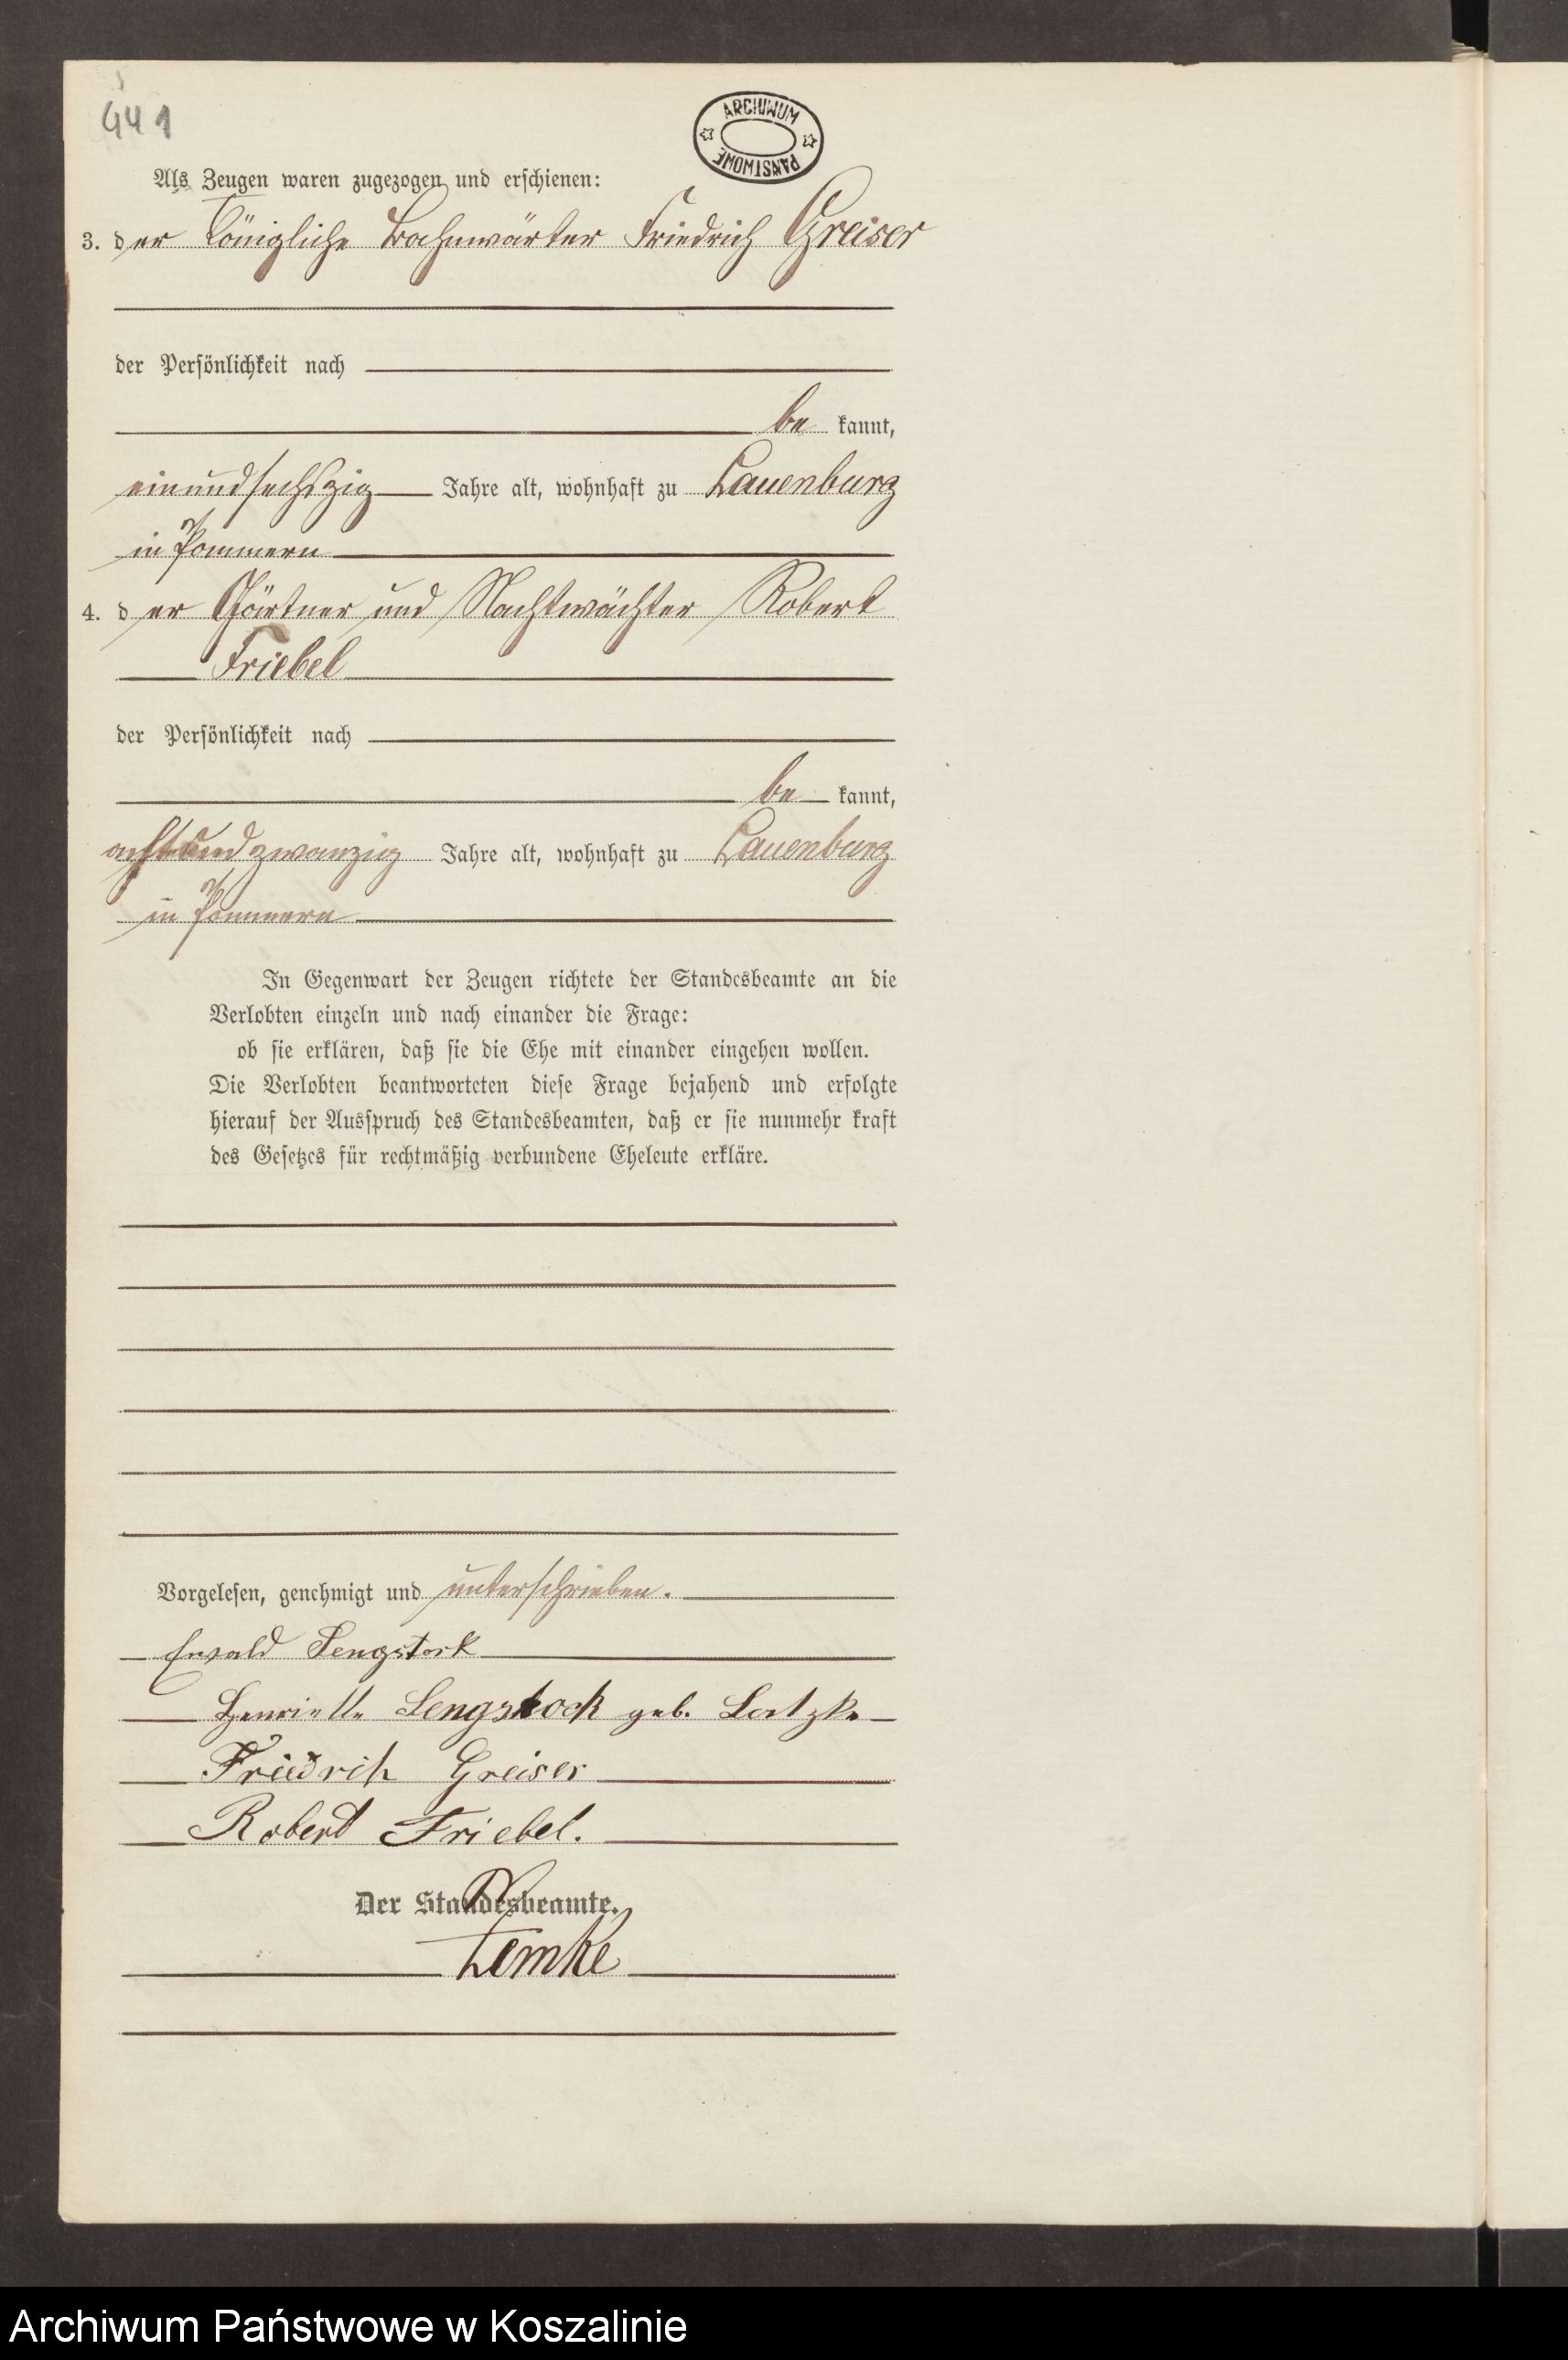 441
ARCHIWUM PAŃSTWOWE
Als Zeugen waren zugezogen und erschienen:
3. der Königliche Bahnwärter Friedrich Greiser
der Persönlichkeit nach
be kannt,
einundsechszig Jahre alt, wohnhaft zu Lauenburg
in Pommern
4. der Gärtner und Nachtwächter Robert
Friebel
der Persönlichkeit nach
be kannt,
achtundzwanzig Jahre alt, wohnhaft zu Lauenburg
in Pommern
In Gegenwart der Zeugen richtete der Standesbeamte an die
Verlobten einzeln und nach einander die Frage:
ob sie erklären, daß sie die Ehe mit einander eingehen wollen.
Die Verlobten beantworteten diese Frage bejahend und erfolgte
hierauf der Ausspruch des Standesbeamten, daß er sie nunmehr kraft
des Gesetzes für rechtmäßig verbundene Eheleute erkläre.
Vorgelesen, genehmigt und unterschrieben.
Ewald Lengstock
Henriette Lengstock geb. Latzke
Friedrich Greiser
Robert Friebel.
Der Standesbeamte.
Lemke
Archiwum Państwowe w Koszalinie